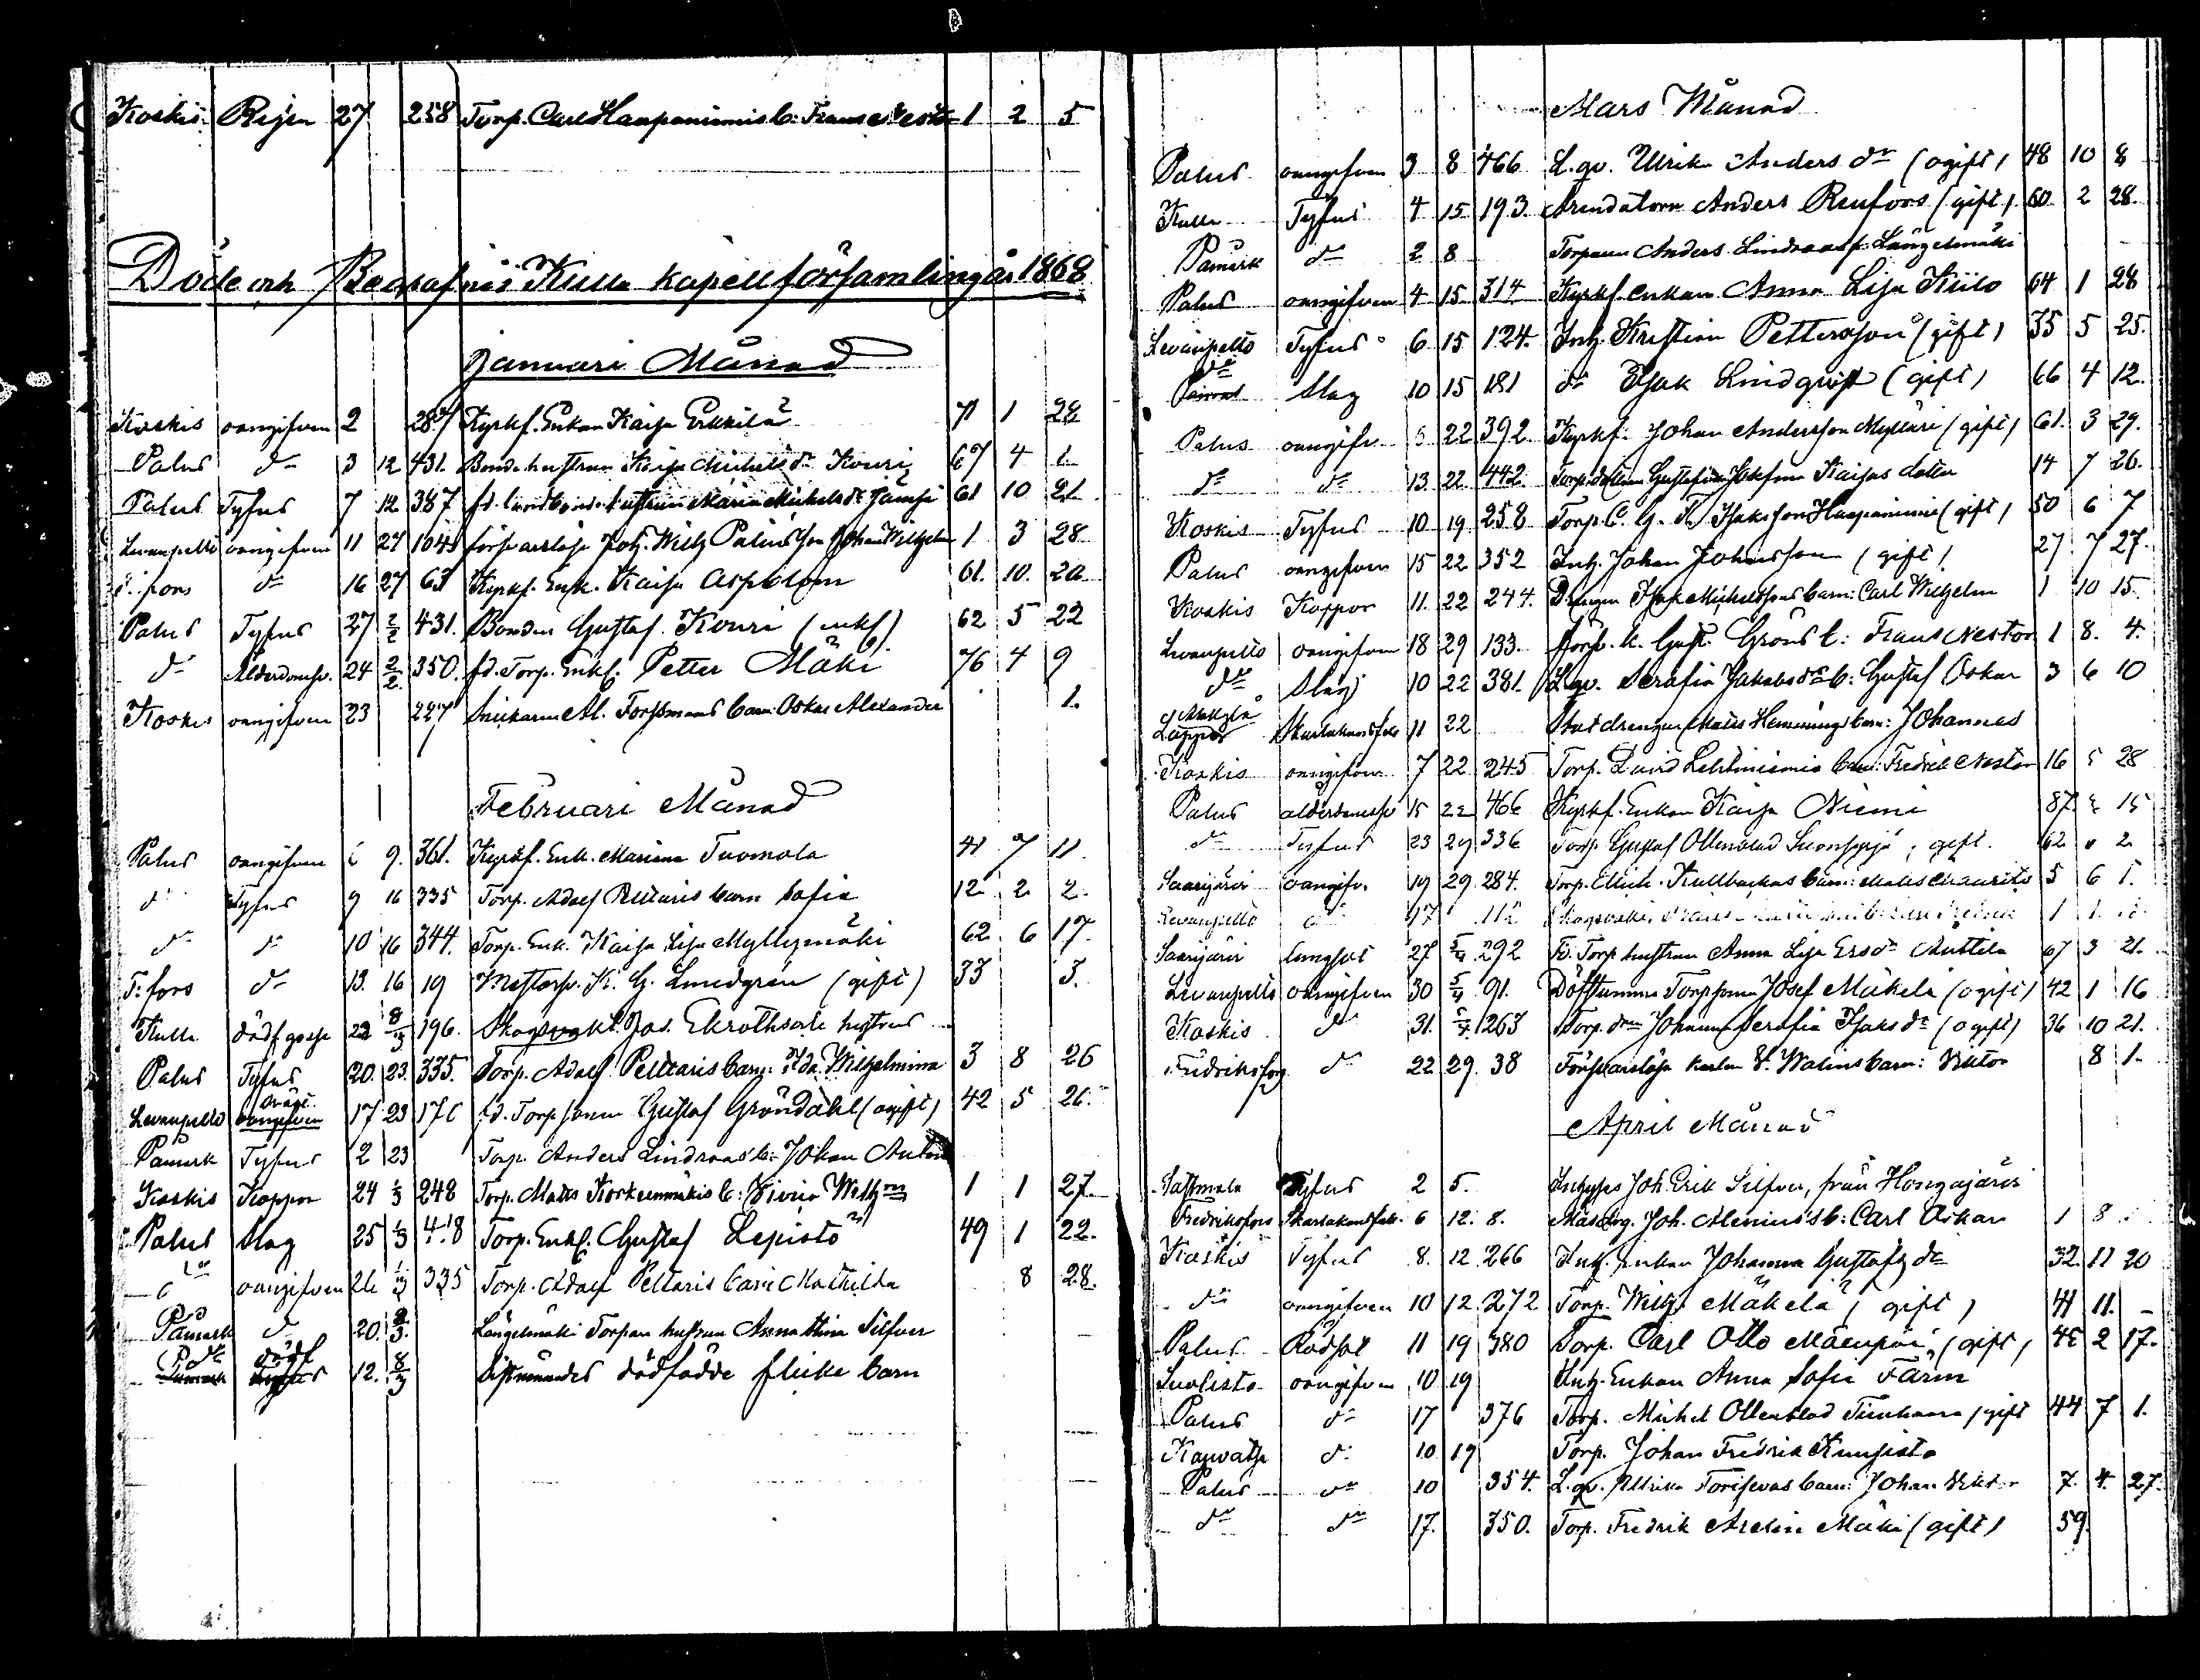 Koskis Rijen 27 258 Torp. Carl Haapaniemis b: Frans Nestor 1 2 5
Döde och Begrafne i Kulla kapellförsamling år 1868
Januari Månad
Koskis oangifven 2 287 Kyrkf. Enkan Kaisa Erkkilä 71 1 28
Palus do 3 12 431. Bonde hustrun Kaisa Michelsdr Kouri 67 4 1
Palus Tyfus 7 12 387 fd. landbonde hustrun Maria Michelsdr Jämsi 61 10 21
Levanpelto oangifven 11 27 104 försvarslöse Joh. Wilh. Palins son Johan Wilhelm 1 3 28
F. fors do 16 27 63 Kyrkf. Enk. Kaisa Asplom 61. 10. 20
Palus Tyfus 27 2/2 431. Bonden Gustaf Kouri (enkl) 62 5 22
do Ålderdomsv. 24 2/2 350. fd. Torp. Enkl. Petter Mäki 76 4 9
Koskis oangifven 23 227 Snickaren Al. Forssmans barn Oskar Alexander 1.
Februari Månad
Palus oangifven 9. 361. Kyrkf. Enk. Mariana Tuomola 41 7 11.
do Tyfus 9 16 335 Torp. Adolf Peltaris barn Sofia 12 2 2.
do do 10 16 344. Torp. Enk. Kaisa Lisa Myllymäki 62 6 17.
F. fors do 13. 16 19 K. G. Lindgren (gift) 33 3.
Kulla dödf gosse 22 8/3 196. Skogsvakt. Jos. Ekroths hustrus
Palus Tyfus 20. 23. 335. Torp. Adolf Peltaris barn: Ida Wilhelmina 3 8 26
Levanpelto oangifven 17 23 176 fd. Torp sonen Gustaf Gröndahl (ogift) 42 5 26.
Påmark Tyfus 2 23 Torp. Anders Lindroos b: Johan Anton
Koskis Koppor 24 1/3 248 Torp. Matts Korkeemäkis b: Wilhm 1 1 27
Palus Slag 25 1/3 418 Torp. Enkl. Gustaf Lepistö 49 1 22.
do oangifven 26 1/3 335 Torp. Adolf Peltaris barn Mathilda 8 28.
Påmark do 20. 8/3. Längelmäki Torpare hustrun Anna Stina Silfver
do dödf 12. 8/3 dödfödde flicke barn
Mars Månad
Palus oangifven 3 8 466 L. qv. Ulrika Anders dr (ogift) 48 10 8
Kulla Tyfus 4 15 193. Arendatorn Anders Renfors (gift) 60 2 28.
Påmark do 2 8 Torparen Anders Lindroos fr. Längelmäki
Palus oangifven 4 15 314 Kyrkf. enkan Anna Lisa Kiilo 64 1 28
Levanpelto Tyfus 6 15 124. Inh. Kristian Pettersson (gift) 35 5 25.
do Slag 10 15 181 do Isak Lindqvist (gift) 66 4 12.
Palus oangifv. 22 392. Kyrkf. Johan Andersson Mylläri (gift) 61. 3 29.
do do 13 22 442. Torp. dottern Gustafva Josefina Kaisas dotter 14 7 26.
Koskis Tyfus 10 19 258 Torp. C. G. Isaksson Haapaniemi (gift) 50 6 7
Palus oangifven 15 22 352 Inh. Johan Johansson (gift) 27 7 27.
Koskis Koppor 11. 22 244. Drängen Isak Michelssons barn: Carl Wilhelm 1 10 15.
Levanpelto oangifven 18 29 133. försv. k. Gust. Gröns b: Frans Nestor 1 8. 4.
do Slag 10 22 381. L. qv. Serafia Jakobsdr b: Gustaf Oskar 3 6 10
Lappo 11 22 Statdrängen Matts Hemmings barn: Johannes
Koskis oangifven 7 22 245 Torp. David Lehtiniemis barn: Fredrik Nestor 16 28
Palus 15 22 466 Kyrkf. Enkan Kaisa Niemi 87. 15
do Tyfus 23 29 336 Torp. Gustaf Ollenblad gift. 62 2
Saarijärvi oangifv. 19 29. 284. Torp. Mich. Kullbackas barn: Matts Mauritz 5 6 1.
Levanpelto do 17 112
Saarijärvi lungsot 27 5/4 292 Fd. Torp hustrun Anna Lisa Ersdr Anttila 67 3 21.
Levanpelto oangifven 30 5/4 91. Döfstumme Torpsonen Josef Mäkelä (ogift) 42 1 16
Koskis do 31. 5/4 263 Torp. dr Johanna Serafia Isaks dr (ogift) 36 10 21.
Fredriksfors do 22 29. 38 Försvarslöse karlen V. Walins barn: Viktor 8 1.
April Månad
Sastmola Tyfus 2 5. Inhyses Joh. Erik Silfver, från Hongajärvi
Fredriksfors Skarlakansfeb. 6 12. 8. Joh. Alenius's b: Carl Oskar 1 8
Koskis Tyfus 8. 12 266 Inh. enkan Johanna Gustafs dr 32. 11 20
do oangifven 10 12. 272 Torp. Wilh. Mäkelä (gift) 41 11. -
Palus Rödsot 11 19 380 Torp. Carl Otto Mäenpää (gift) 45 2 17.
oangifven 10 19 Inh. Enkan Anna Sofia Färm
Palus do 17 376 Torp. Michel Ollenblad (gift 44 7 1.
do 10 19 Torp. Johan Fredrik Kuusisto
Palus do 10 354. L. qv. Ulrika Torisevas barn: Johan Viktor 7. 4. 27.
do do 17. 350. Torp. Fredrik Mäki (gift) 59